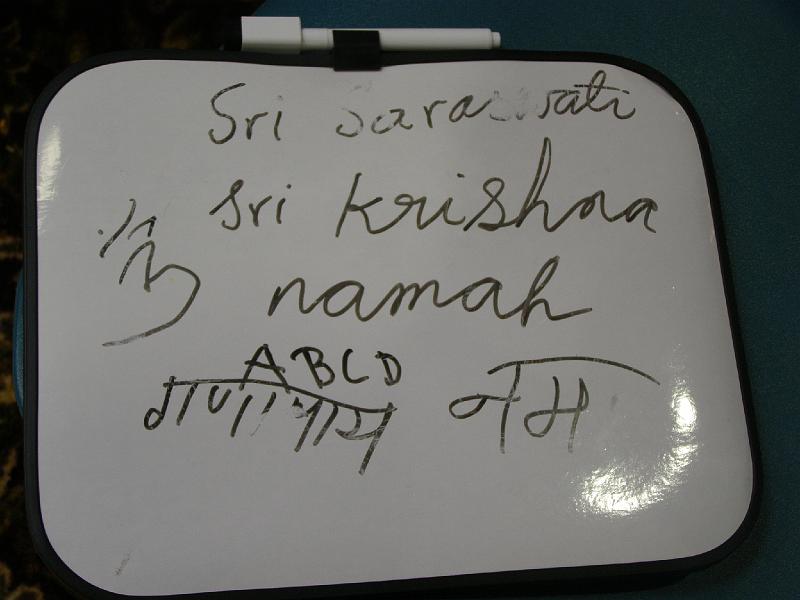 Sri Saraswati
Sri Krishna
namah
ABCD
नम